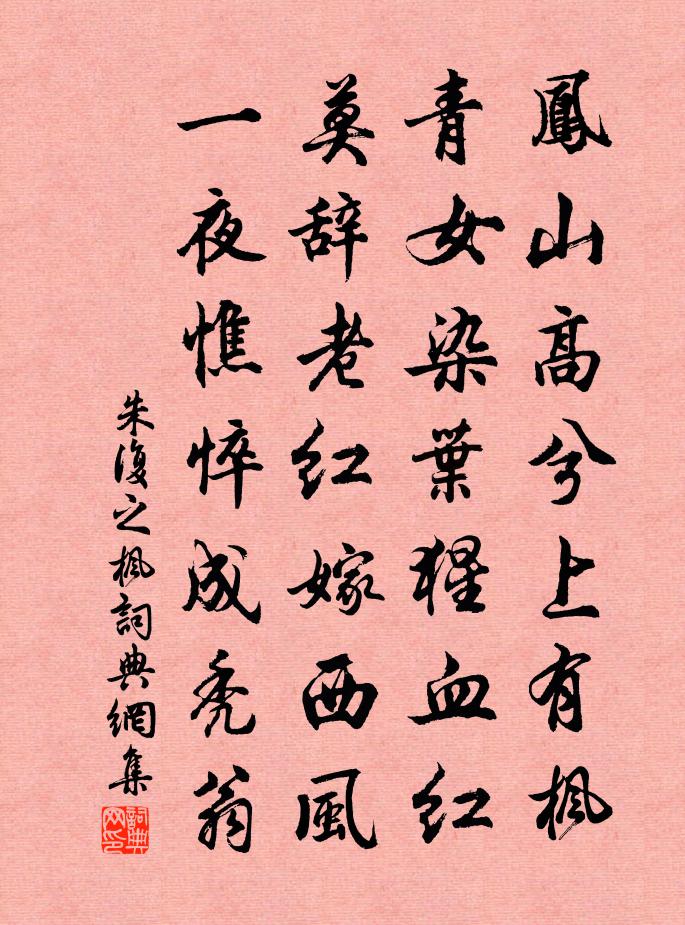 鳳山高兮上有楓
青女染葉猩血紅
莫辞老红嫁西風
一夜憔悴成秃翁
朱復之楓詞典網集
詞典网印